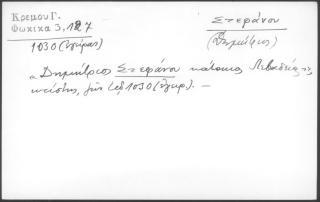 Κρέμου Γ.
Φωκικά 3, 127
1030 (Ἐγίρας)
Στεφάνου
(Δημήτριος)
"Δημήτριος Στεφάνου κάτοικος Λεβαδείας
κτίστης, 1030 (Ἐγιρ). —